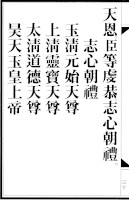 天恩臣等虔恭志心朝禮
志心朝禮
玉清元始天尊
上清靈寶天尊
太清道德天尊
昊天玉皇上帝